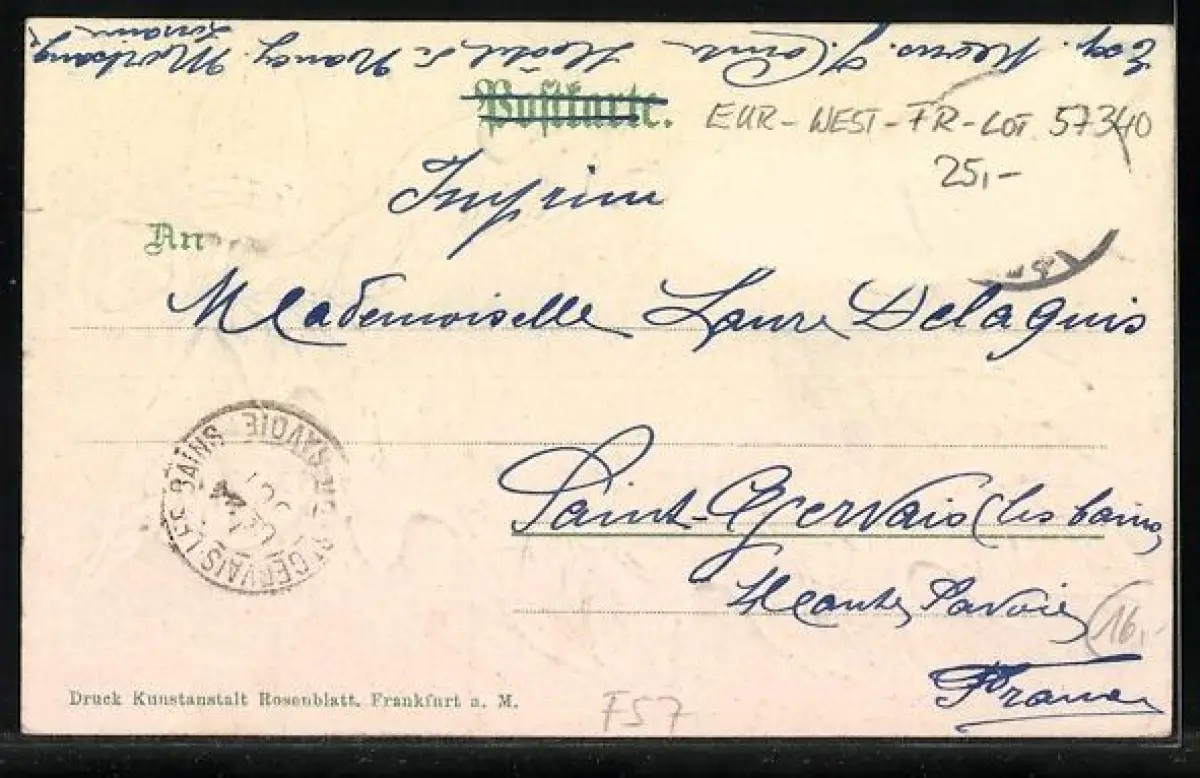 Hotel de Nancy.
Postkarte.
EUR-WEST-FR-LOT 57340
25,-
Imprim
An
Mademoiselle Laure Delaquis
Saint-Gervais (les bains
Haute Savoie
16,-
France
ST GERVAIS LES BAINS HTE SAVOIE
Druck Kunstanstalt Rosenblatt, Frankfurt a. M.
F57